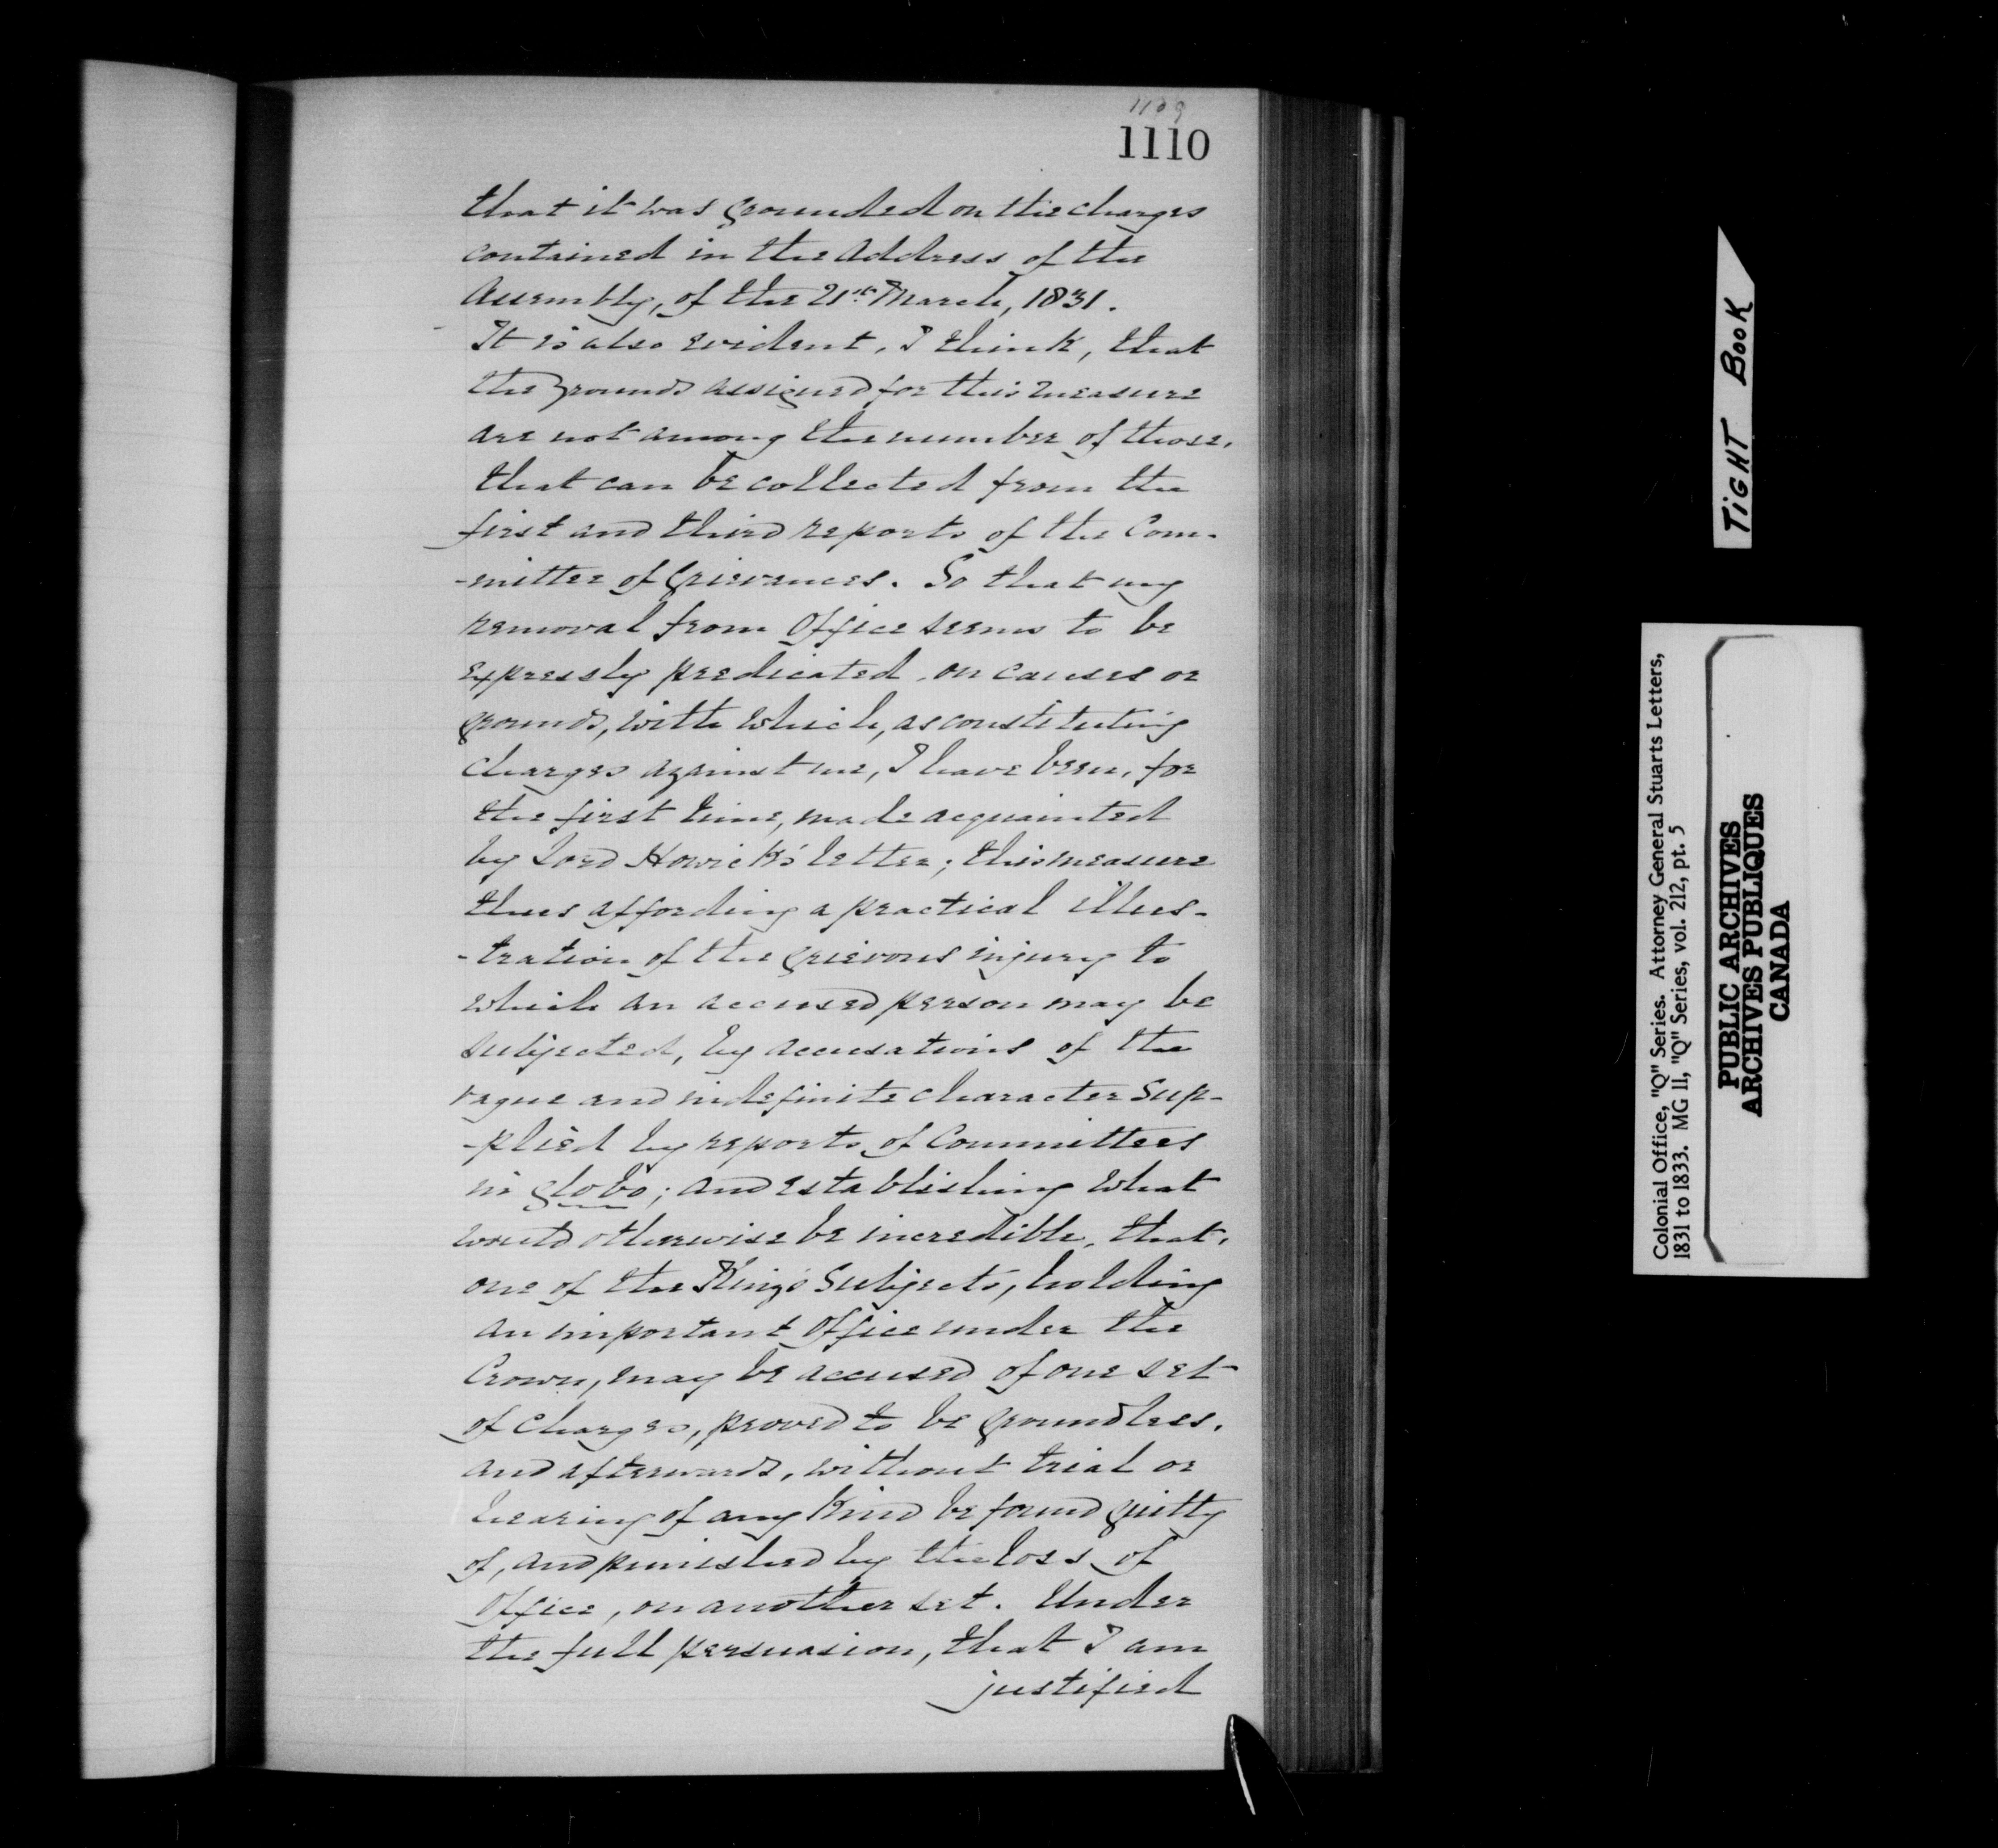 1109
1110
that it was grounded on the charges
contained in the Address of the
Assembly, of the 21st March, 1831.
It is also evident, I think, that
the grounds assigned for this measure
are not among the number of those,
that can be collected from the
first and third reports of the Com-
-mittee of Grievances. So that my
removal from Office seems to be
expressly predicated, on causes or
grounds, with which, as constituting
charges against me, I have been, for
the first time, made acquainted
by Lord Howick's letter; this measure
thus affording a practical illus-
-tration of the grievous injury to
which an accused person may be
subjected, by accusations of the
vague and indefinite character sup-
-plied by reports of Committees
in globo; and establishing what
would otherwise be incredible, that,
one of the King's Subjects, holding
an important Office under the
Crown, may be accused of one set
of charges, proved to be groundless,
and afterwards, without trial or
hearing of any kind be found guilty
of, and punished by the loss of
Office, on another set. Under
the full persuasion, that I am
justified
TIGHT BOOK
Colonial Office, "Q" Series. Attorney General Stuarts Letters,
1831 to 1833. MG 11, "Q" Series, vol. 212, pt. 5
PUBLIC ARCHIVES
ARCHIVES PUBLIQUES
CANADA